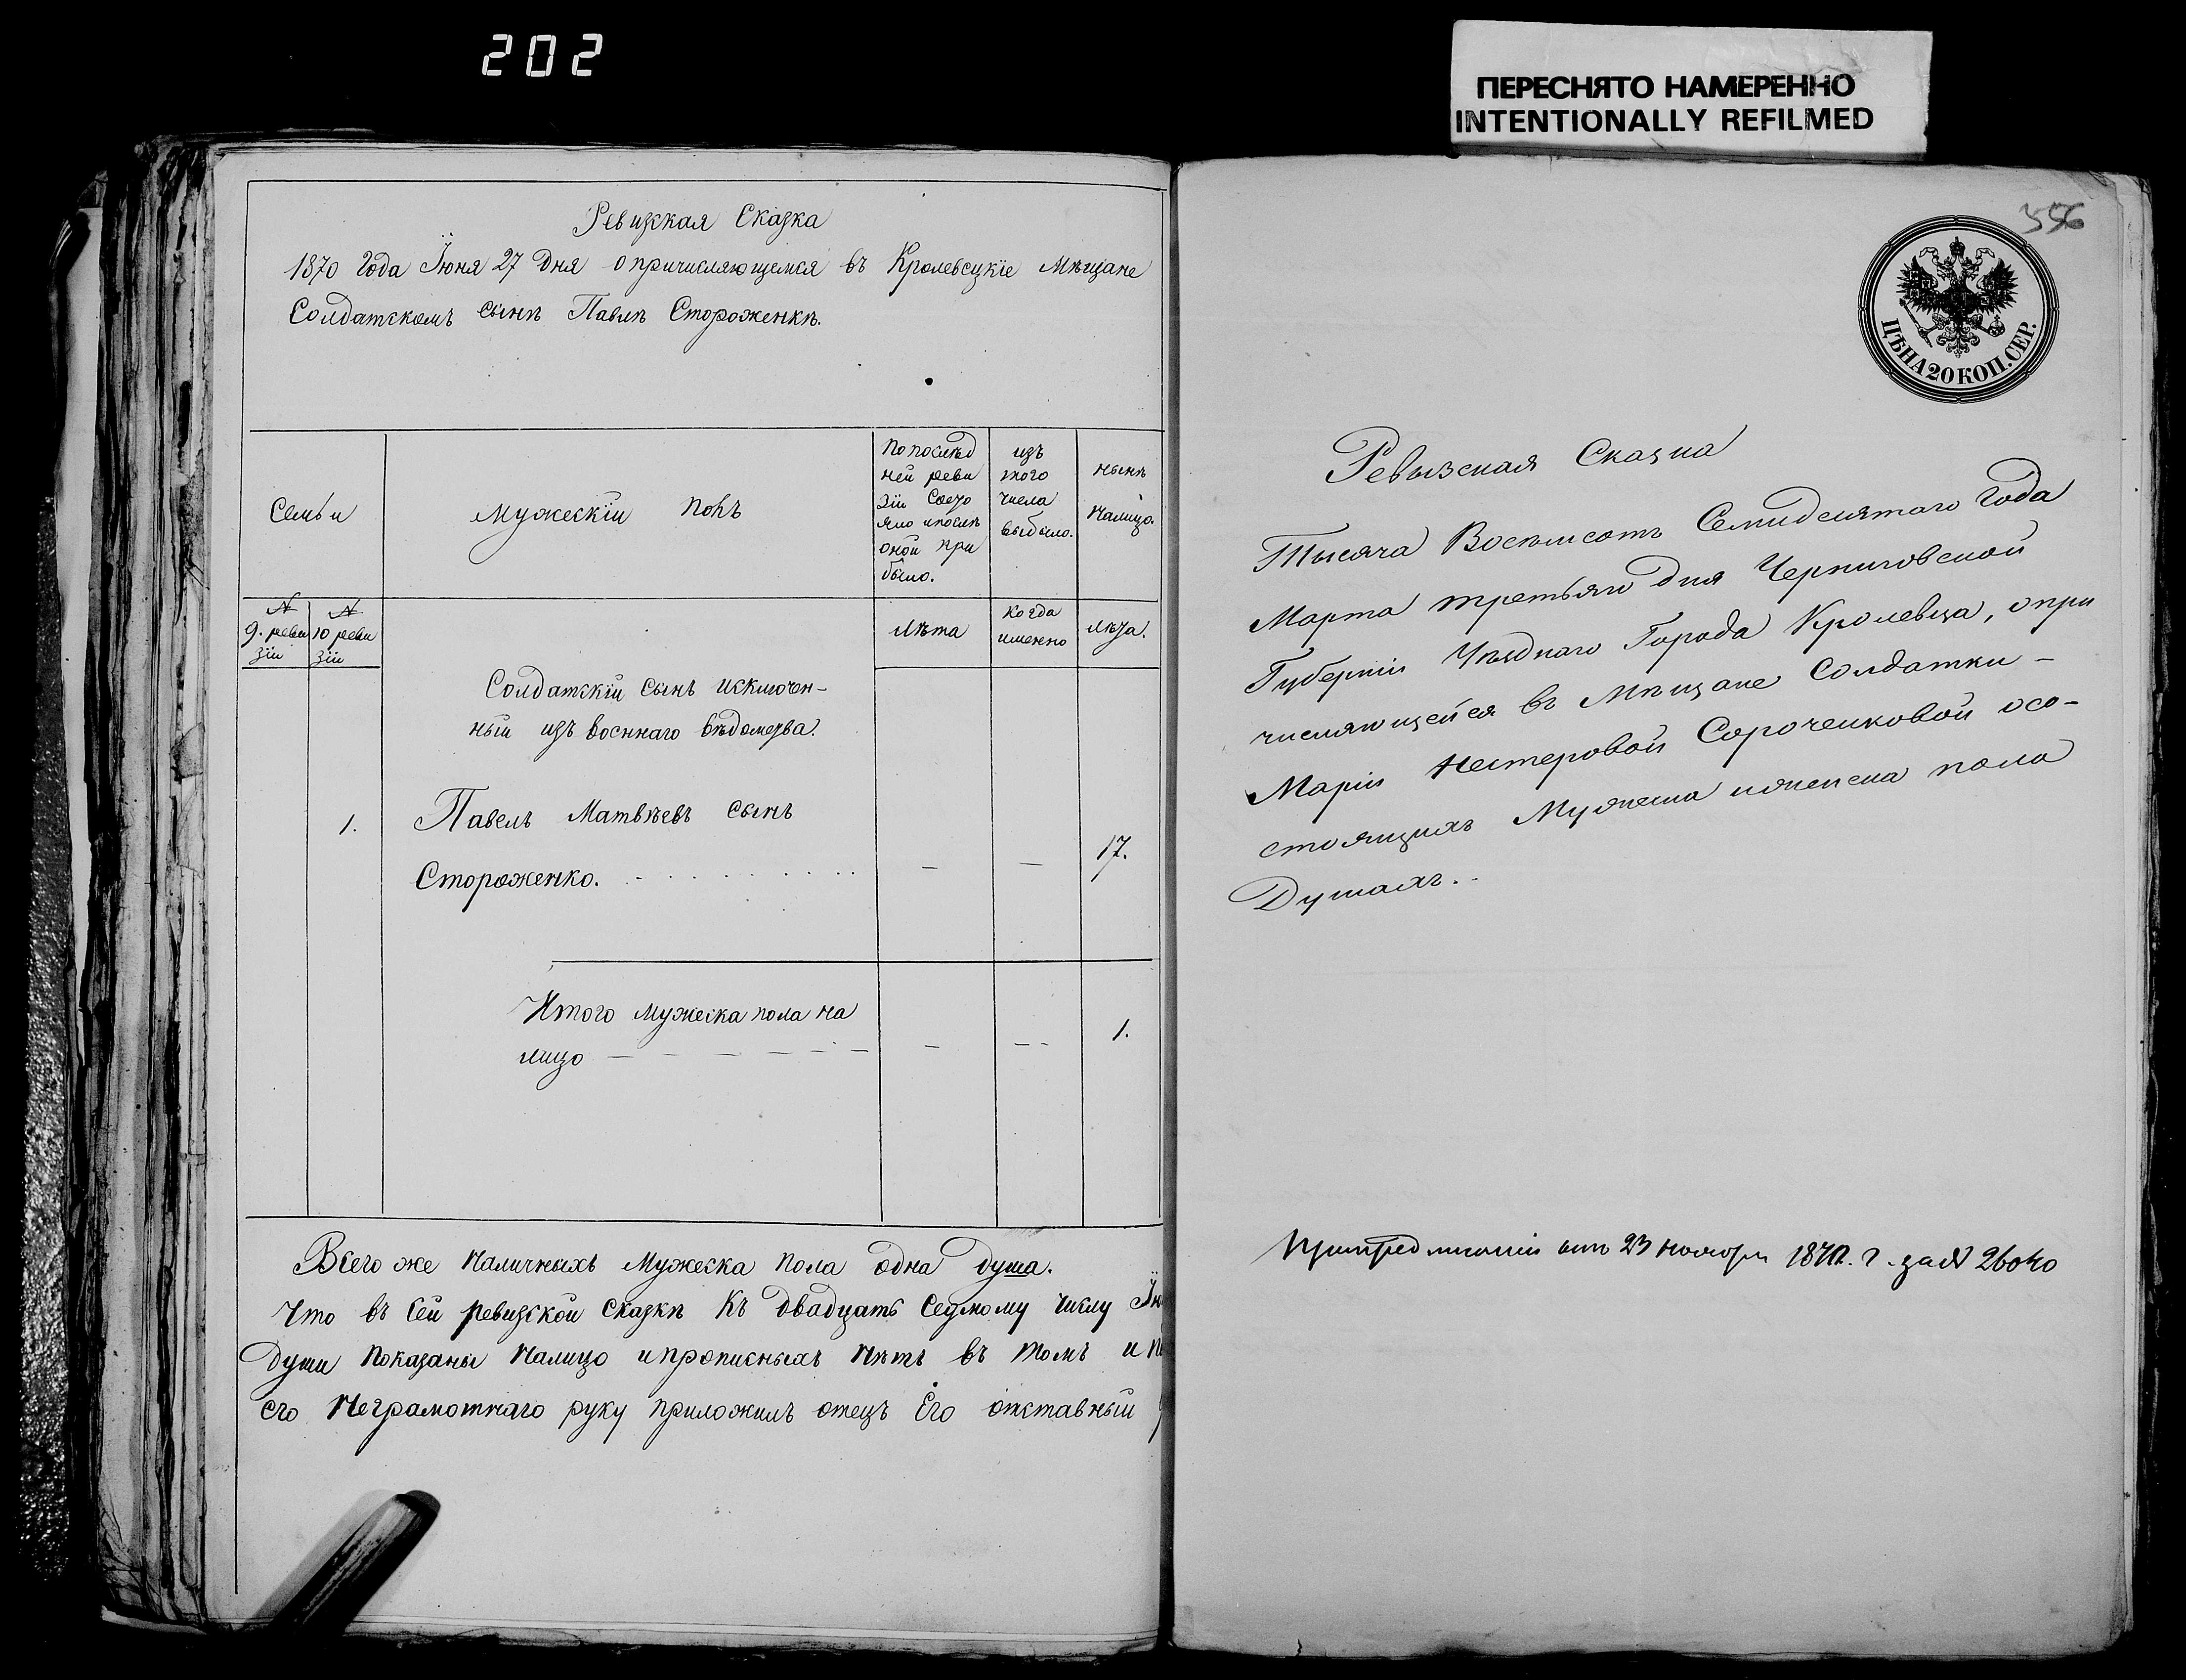 202
ПЕРЕСНЯТО НАМЕРЕННО
INTENTIONALLY REFILMED
Ревизская Сказка
1870 года Іюня 27 дня о причисляющемся въ Кролевецкіе Мѣщане
Солдатскомъ сынѣ Павлѣ Стороженкѣ.
Семьи
Мужескій полъ
По послѣд
ней реви
зіи состо
яло и послѣ
оной при
было.
изъ
того
числа
выбыло.
нынѣ
налицо.
№
9. реви
зіи
№
10 реви
зіи
лѣта
когда
именно
лѣта.
Солдатскій сынъ исключен-
ный изъ военнаго вѣдомства.
1.
Павелъ Матвѣевъ сынъ
Стороженко.
—
—
17.
Итого мужеска пола на
лицо
—
—
1.
Всего же наличныхъ мужеска пола одна душа.
Что въ сей ревизской сказкѣ къ двадцать седмому числу
души показаны налицо и прописныхъ нѣтъ въ томъ и
его неграмотнаго руку приложилъ отецъ его отставный
356
ЦѢНА 20 КОП. СЕР.
Ревызская Сказка
Тысяча Восемсотъ Семидесятаго года
Марта третьяго дня Черниговской
Губерніи Уѣзднаго Города Кролевца, о при
числяющейся въ Мѣщане Солдатки –
Маріи Нестеровой Сороченковой осо-
стоящихъ Мужеска и женска пола
Душахъ.
23 ноября 187 . г. за №